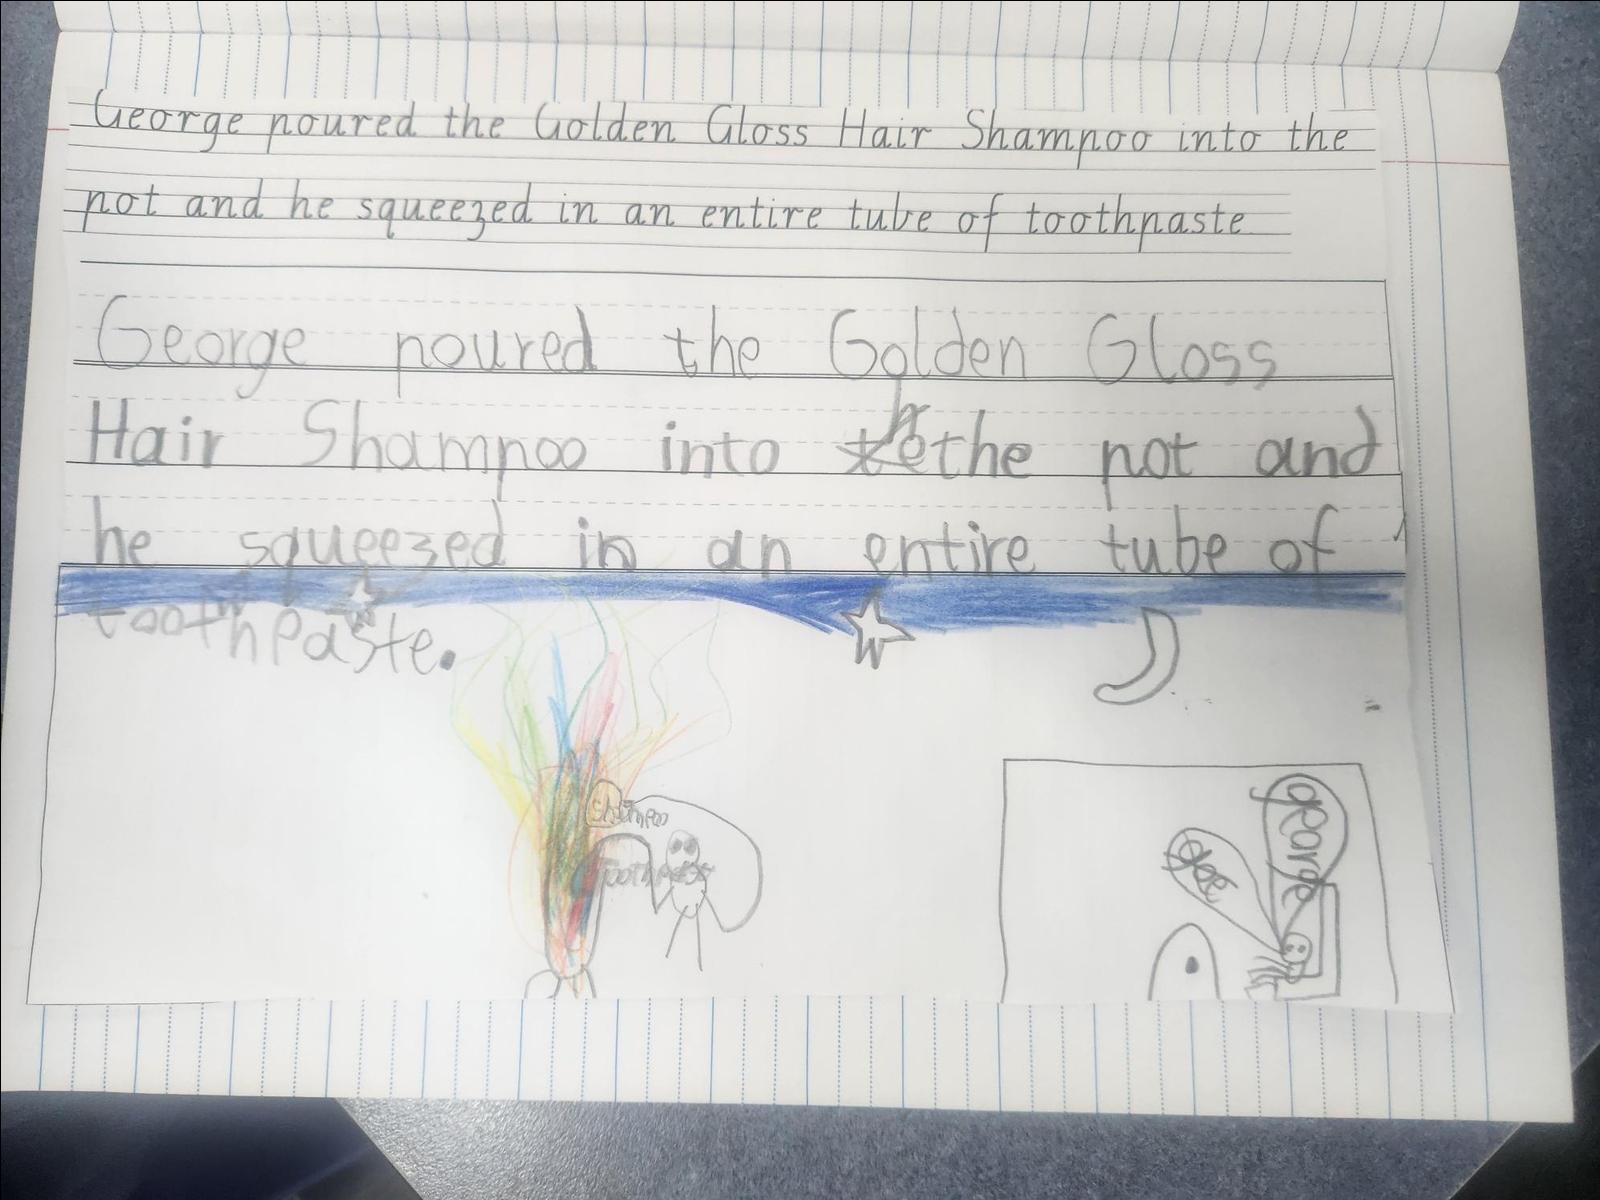 George poured the Golden Gloss Hair Shampoo into the
pot and he squeezed in an entire tube of toothpaste
George poured the Golden Gloss
Hair Shampoo into the the pot and
he squeezed in an entire tube of
toothpaste.
Shampoo
george